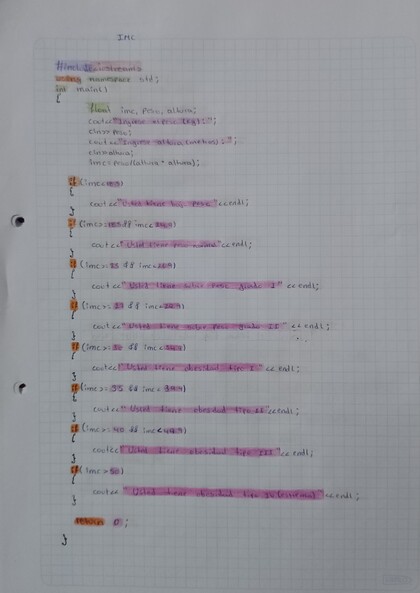 IMC
#include<iostream>
using namespace std;
int main()
{
float imc, peso, altura;
cout<<"Ingrese el peso (kg):";
cin>>peso;
cout<<"Ingrese altura (metros):";
cin>>altura;
imc=peso/(altura * altura);
if(imc<18.9)
{
cout<<"Usted tiene bajo peso"<<endl;
}
if(imc>= && imc<
{
cout<<"Usted tiene peso normal"<<endl;
}
if(imc>=25 && imc<
{
cout<<"Usted tiene sobre peso grado I"<<endl;
}
if(imc>= && imc<
{
cout<<"Usted tiene sobre peso grado II"<<endl;
}
if(imc>=30 && imc<
{
cout<<"Usted tiene obesidad tipo I"<<endl;
}
if(imc>=35 && imc<39.9)
{
cout<<"Usted tiene obesidad tipo II"<<endl;
}
if(imc>=40 && imc<49.9)
{
cout<<"Usted tiene obesidad tipo III"<<endl;
}
if(imc>50)
{
cout<<"Usted tiene obesidad tipo IV (extrema)"<<endl;
}
return 0;
}